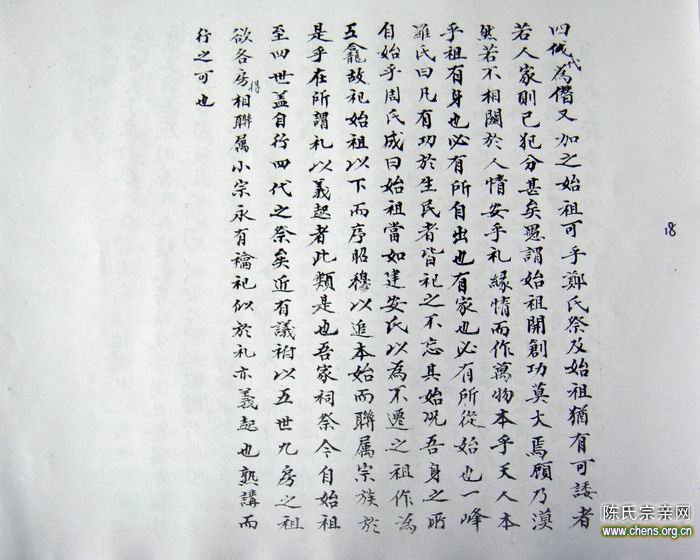 四伐代為僭又加之始祖可乎鄭氏祭及始祖猶有可諉者
若人家則已犯分甚矣愚謂始祖開創功莫大焉顧乃漠
然若不相關於人情安乎礼緣情而作萬物本乎天人本
乎祖有身也必有所自出也有家也必有所從始也一峰
羅氏曰凡有功於生民者皆祀之不忘其始况吾身之所
自始乎周氏成曰始祖當如建安氏以為不遷之祖作為
五龕故祀始祖以下而序昭穆以進本始而聯属宗族於
是乎在所謂礼以義起者此類是也吾家祠祭今自始祖
至四世盖自行四代之祭矣近有議祔以五世九房之祖
欲各房得相聯属小宗永有禴祀似於礼亦義起也熟講而
行之可也
18
陈氏宗亲网
www.chens.org.cn